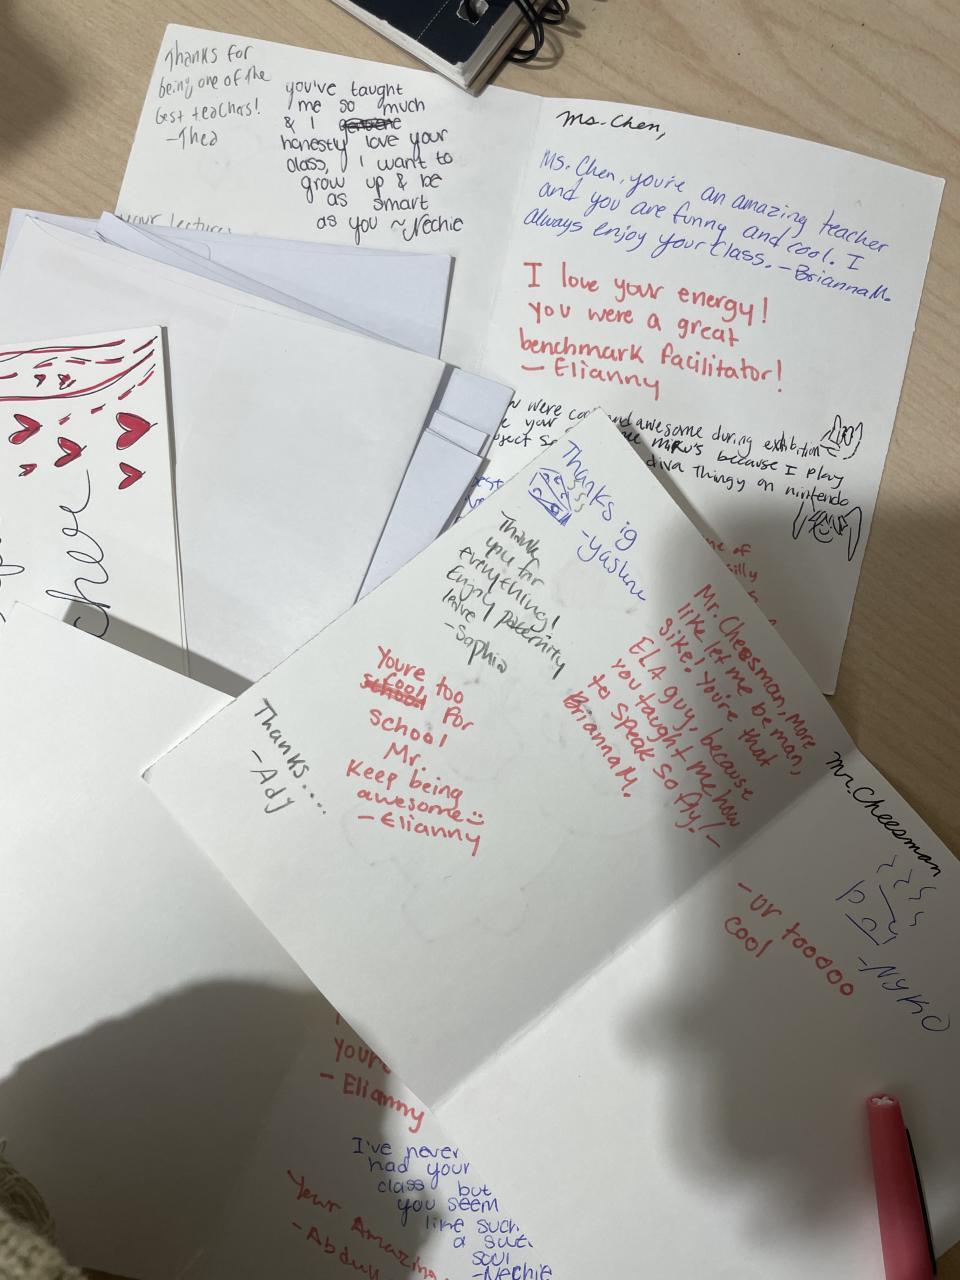 Thanks for
being one of the
best teachers!
-Thea
you've taught
me so much
& I
honestly love your
class, I want to
grow up & be
as smart
as you ~Nechie
your lectures
Ms. Chen,
Ms. Chen, you're an amazing teacher
and you are funny and cool. I
always enjoy your class. - Brianna M.
I love your energy!
You were a great
benchmark facilitator!
- Elianny
were and awesome during exhibition
your because I play
diva thingy on nintendo
of
silly
Thanks ig
Thank
you for
everything!
Enjoy paternity
leave
-Sophia
Mr. Cheesman, more
like let me be man,
sike! You're that
ELA guy, because
you taught me how
to speak so fly! -
Brianna M.
Youre too
cool for
school
Mr.
Keep being
awesome
- Elianny
Thanks....
- Ady
Mr. Cheesman
- NYKO
- ur tooooo
cool
your
- Elianny
I've never
had your
class but
you seem
like such
a
soul
-Nechie
Your Amazing
- Abdul